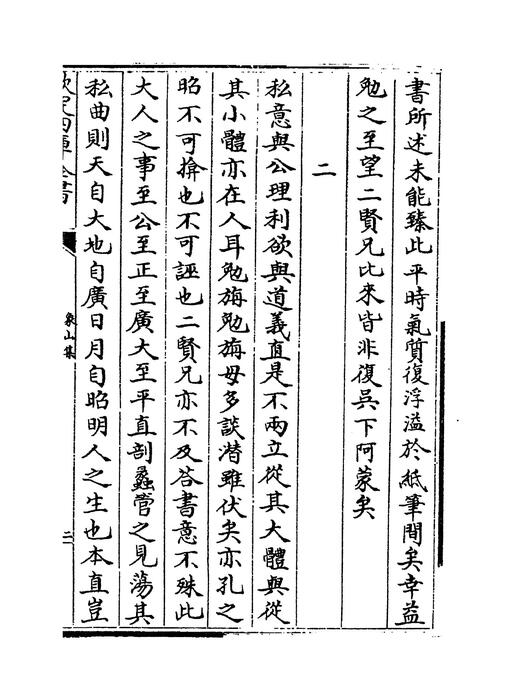 書所述未能臻此平時氣質復浮溢於紙筆間矣幸益
勉之至望二賢兄比來皆非復吳下阿蒙矣
二
私意與公理利欲與道義直是不兩立從其大體與從
其小體亦在人耳勉旃勉旃毋多談潛雖伏矣亦孔之
昭不可揜也不可誣也二賢兄亦不及荅書意不殊此
大人之事至公至正至廣大至平直剖蠡管之見蕩其
私曲則天自大地自廣日月自昭明人之生也本直豈
欽定四庫全書
象山集
二